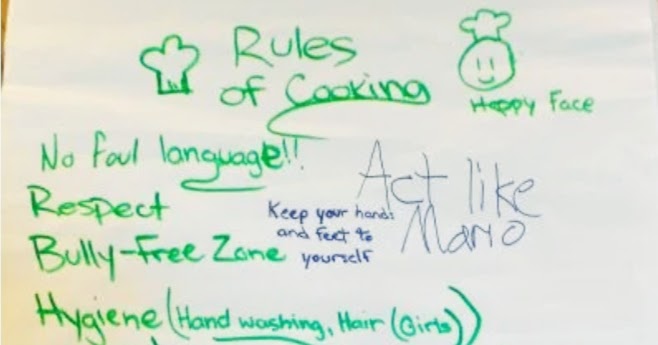 Rules
of Cooking
Happy Face
No foul language!!
Act like
Mario
Respect
Keep your hands
and feet to
yourself
Bully-Free Zone
Hygiene (Hand washing, Hair (Girls))